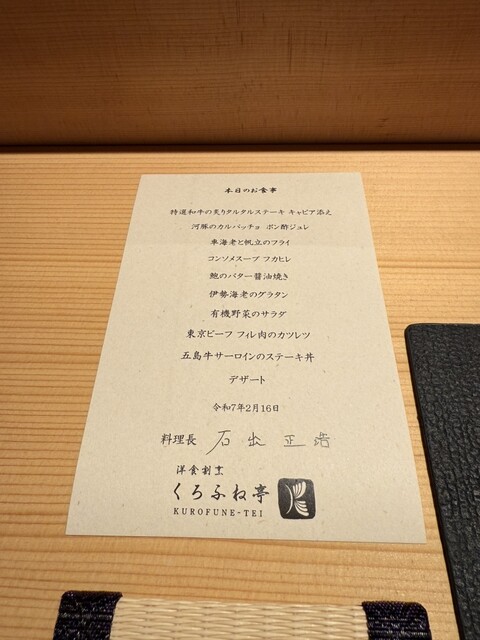 本日のお食事
特選和牛の炙りタルタルステーキ キャビア添え
河豚のカルパッチョ ポン酢ジュレ
車海老と帆立のフライ
コンソメスープ フカヒレ
鮑のバター醤油焼き
伊勢海老のグラタン
有機野菜のサラダ
東京ビーフ フィレ肉のカツレツ
五島牛サーロインのステーキ丼
デザート
令和7年2月16日
料理長 石出 正浩
洋食割烹
くろふね亭
KUROFUNE-TEI